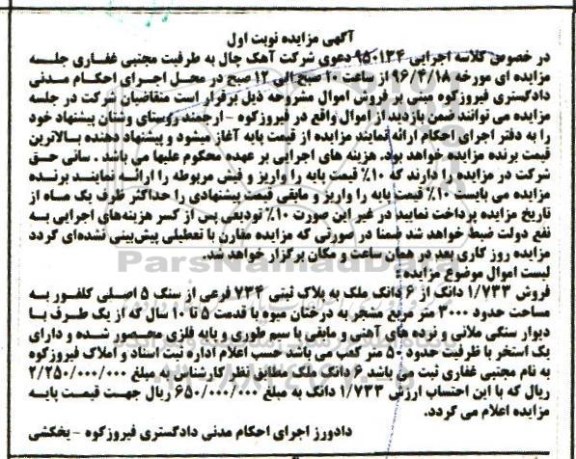 آگهی مزایده نوبت اول
در خصوص کلاسه اجرایی ۹۵۰۱۳۴ دعوی شرکت آهک چال به طرفیت مجتبی غفاری جلسه
مزایده ای مورخه ۹۶/۴/۱۸ از ساعت ۱۰ صبح الی ۱۲ صبح در محل اجرای احکام مدنی
دادگستری فیروزکوه مبنی بر فروش اموال مشروحه ذیل برقرار است متقاضیان شرکت در جلسه
مزایده می توانند ضمن بازدید از اموال واقع در فیروزکوه - ارجمند روستای وشتان پیشنهاد خود
را به دفتر اجرای احکام ارائه نمایند مزایده از قیمت پایه آغاز میشود و پیشنهاد دهنده بالاترین
قیمت برنده مزایده خواهد بود. هزینه های اجرایی بر عهده محکوم علیها می باشد . سانی حق
شرکت در مزایده را دارند که ۱۰٪ قیمت پایه را واریز و فیش مربوطه را ارائه نمایند برنده
مزایده می بایست ۱۰٪ قیمت پایه را واریز و مابقی قیمت پیشنهادی را حداکثر ظرف یک ماه از
تاریخ مزایده پرداخت نمایید در غیر این صورت ۱۰٪ تودیعی پس از کسر هزینه‌های اجرایی به
نفع دولت ضبط خواهد شد ضمنا در صورتی که مزایده مقارن با تعطیلی پیش‌بینی نشده‌ای گردد
مزایده روز کاری بعد در همان ساعت و مکان برگزار خواهد شد.
لیست اموال موضوع مزایده:
فروش ۱/۷۳۳ دانگ از ۶ دانگ ملک به پلاک ثبتی ۷۳۴ فرعی از سنگ ۵ اصلی کلفور به
مساحت حدود ۳۰۰۰ متر مربع مشجر به درختان میوه با قدمت ۵ تا ۱۰ سال که از یک طرف با
دیوار سنگی ملاتی و نرده های آهنی و مابقی با سیم طوری و پایه فلزی محصور شده و دارای
یک استخر با ظرفیت حدود ۵۰ متر کعب می باشد حسب اعلام اداره ثبت اسناد و املاک فیروزکوه
به نام مجتبی غفاری ثبت می باشد ۶ دانگ ملک مطابق نظر کارشناس به مبلغ ۲/۲۵۰/۰۰۰/۰۰۰
ریال که با این احتساب ارزش ۱/۷۳۳ دانگ به مبلغ ۶۵۰/۰۰۰/۰۰۰ ریال جهت قیمت پایه
مزایده اعلام می گردد.
دادورز اجرای احکام مدنی دادگستری فیروزکوه - یخکشی
ParsNamadData